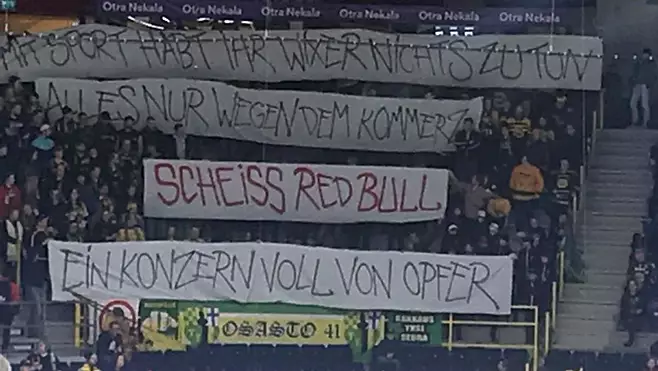 Otra Nekala Otra Nekala Otra Nekala Otra Nekala Otra Nekala
MIT SPORT HABT IHR WIXER NICHTS ZU TUN
ALLES NUR WEGEN DEM KOMMERZ
SCHEISS RED BULL
EIN KONZERN VOLL VON OPFER
OSASTO 41